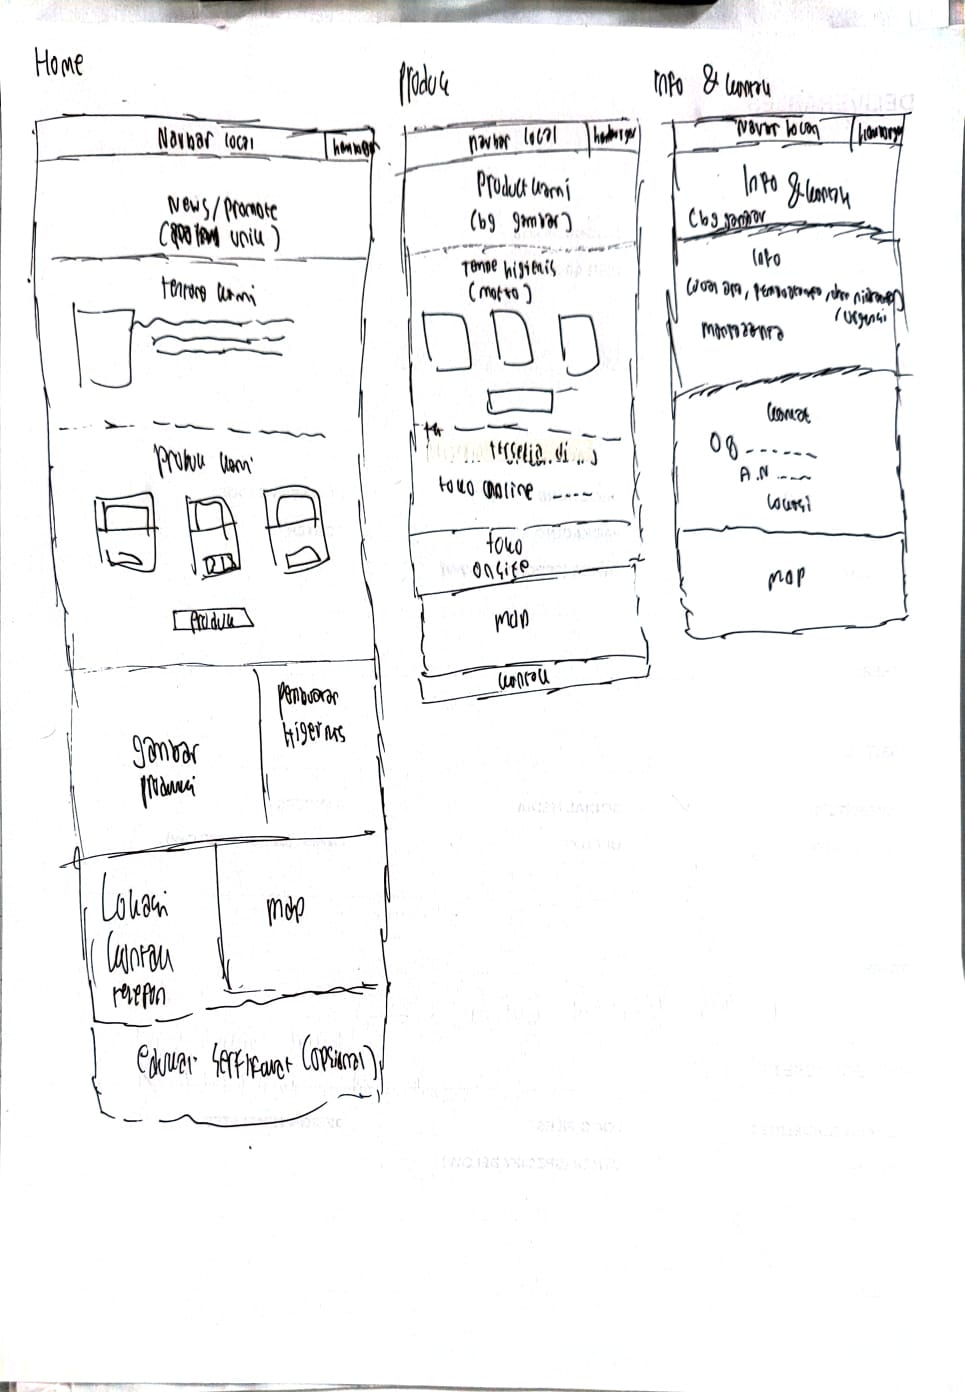 Home
Navbar local
hamburger
News/Promote
unik)
tentang kami
produk kami
Produk
gambar
produksi
pembuatan
higienis
Lokasi
kontak
telepon
map
edukasi sertifikat (opsional)
Produk
navbar local
hamburger
Product kami
(bg gambar)
Tempe higienis
(motto)
tersedia di
toko online ----
toko
onsite
map
kontak
Info & kontak
Navbar local
hamburger
Info & kontak
(bg gambar
Info
/urgensi
kontak
08------
A.N ----
lokasi
map